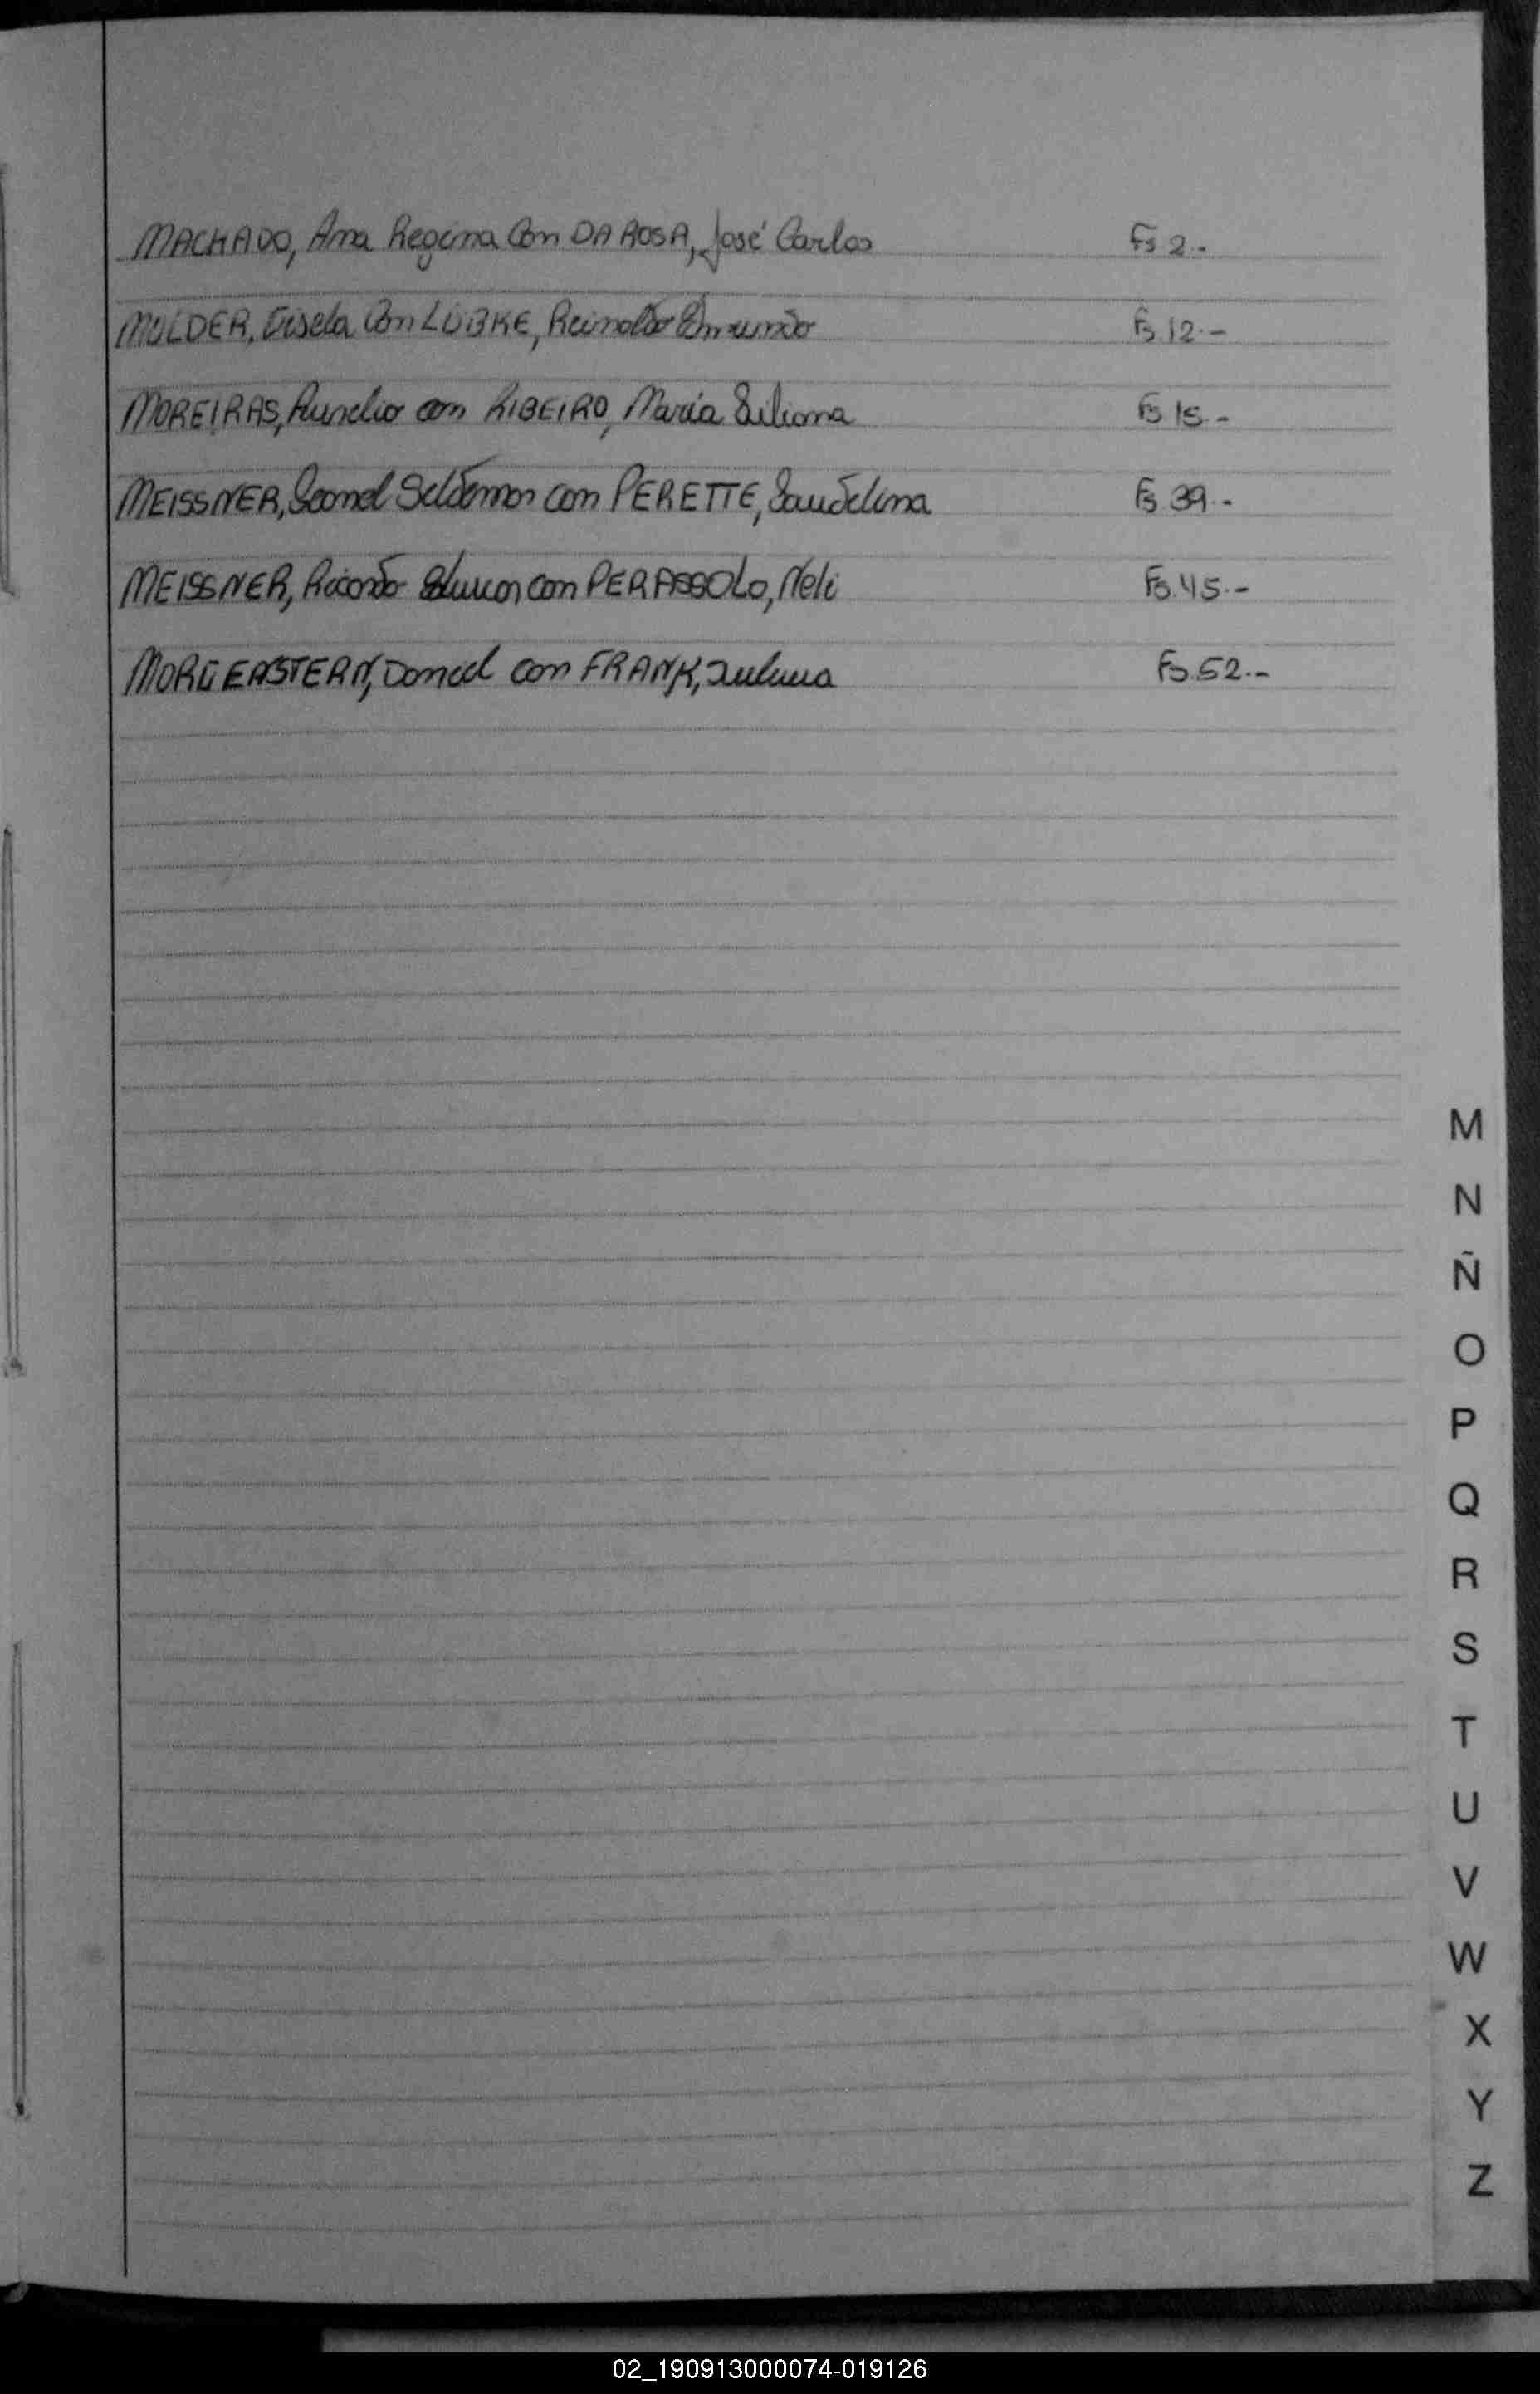 MACHADO, Ana Regina Con DA ROSA, José Carlos Fs 2.-
MULDER, Gisela Con LÜBKE, Reinoldo Edmundo Fs 12.-
MOREIRAS, Aurelio con RIBEIRO, María Liliana Fs 15.-
MEISSNER, Leonel con PERETTE, Laudelina Fs 39.-
MEISSNER, Ricardo con PERASSOLO, Neli Fs.45.-
MORGENSTERN, Daniel con FRANK, Fs.52.-
M
N
Ñ
O
P
Q
R
S
T
U
V
W
X
Y
Z
02_190913000074-019126